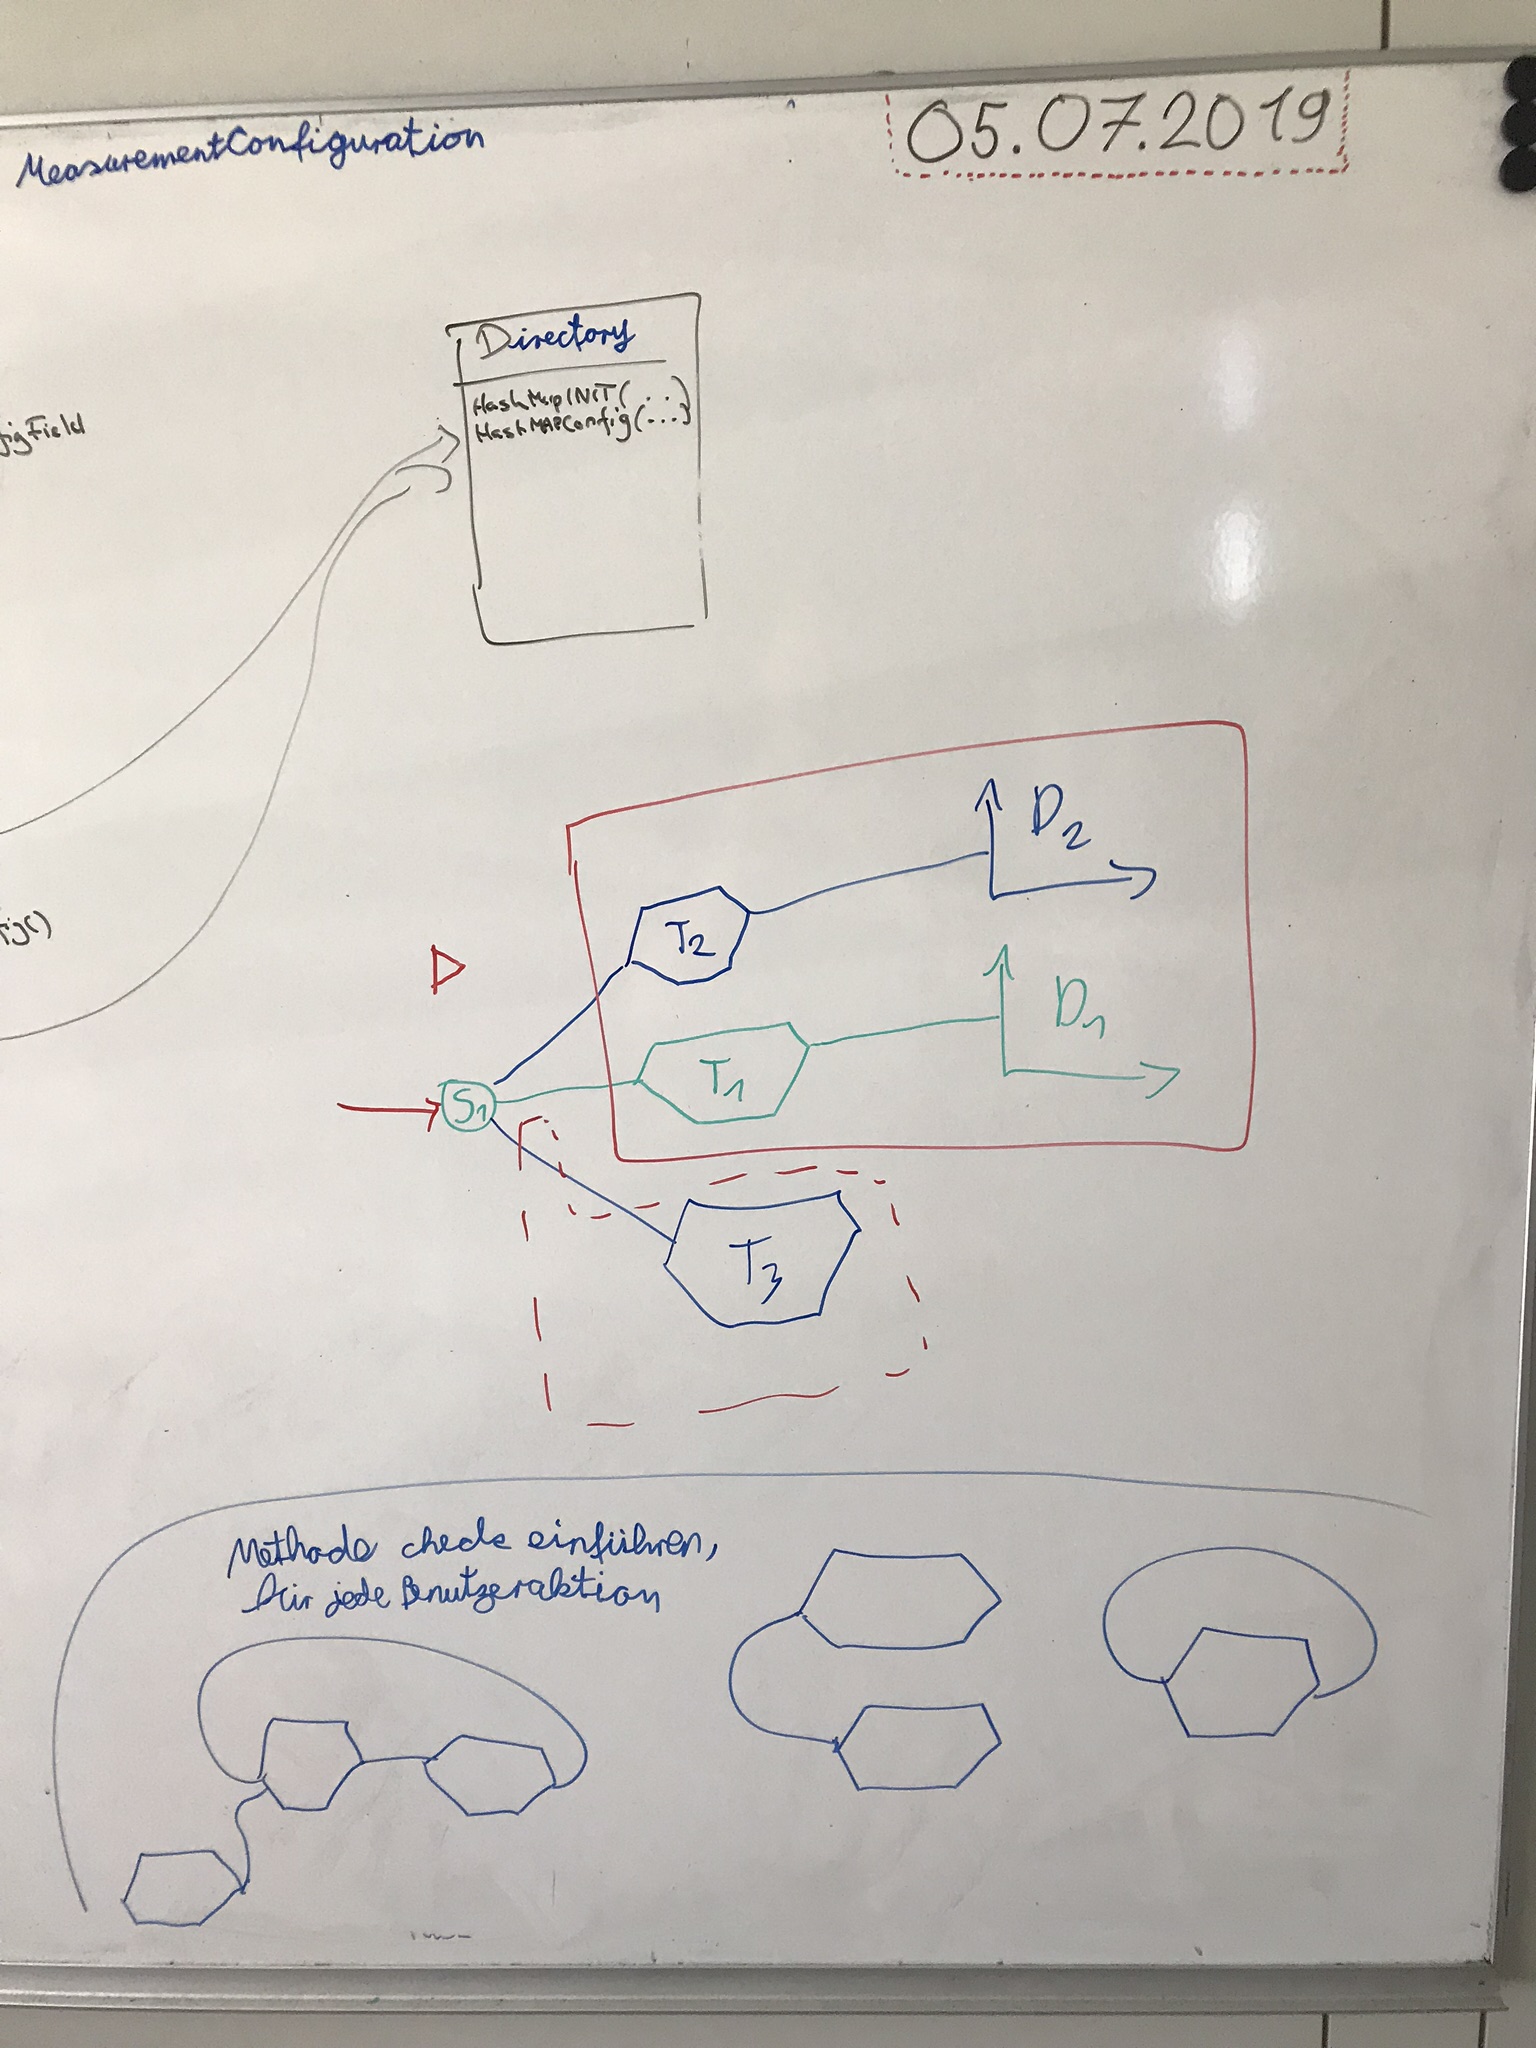 MeasurementConfiguration
05.07.2019
Directory
HashMapINIT(...)
HashMAPConfig(...)
figField
fig()
D2
T2
D1
T1
S1
T3
Methode check einführen,
für jede Benutzeraktion